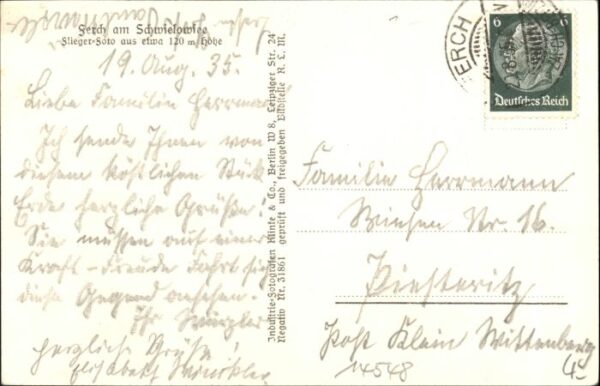 Ferch am Schwielowsee
Flieger-Foto aus etwa 120 m Höhe
19. Aug. 35.
Liebe Familie Herrmann
Ich sende Ihnen von
diesem köstlichen Stück
Erde herzliche Grüße!
Sie müssen auf einer
Kraft-Freude Fahrt sich
diese Gegend ansehen.
Ihr
herzliche Grüße
Elisabeth
Industrie-Fotografen Klinke & Co., Berlin W 8, Leipziger Str. 24
Negativ Nr. 31861 geprüft und freigegeben Bildstelle R. L. M.
FERCH
6 6
Deutsches Reich
Familie Herrmann
Wiesen Nr. 16.
Piesteritz
Post Klein Wittenberg
14548
4,-